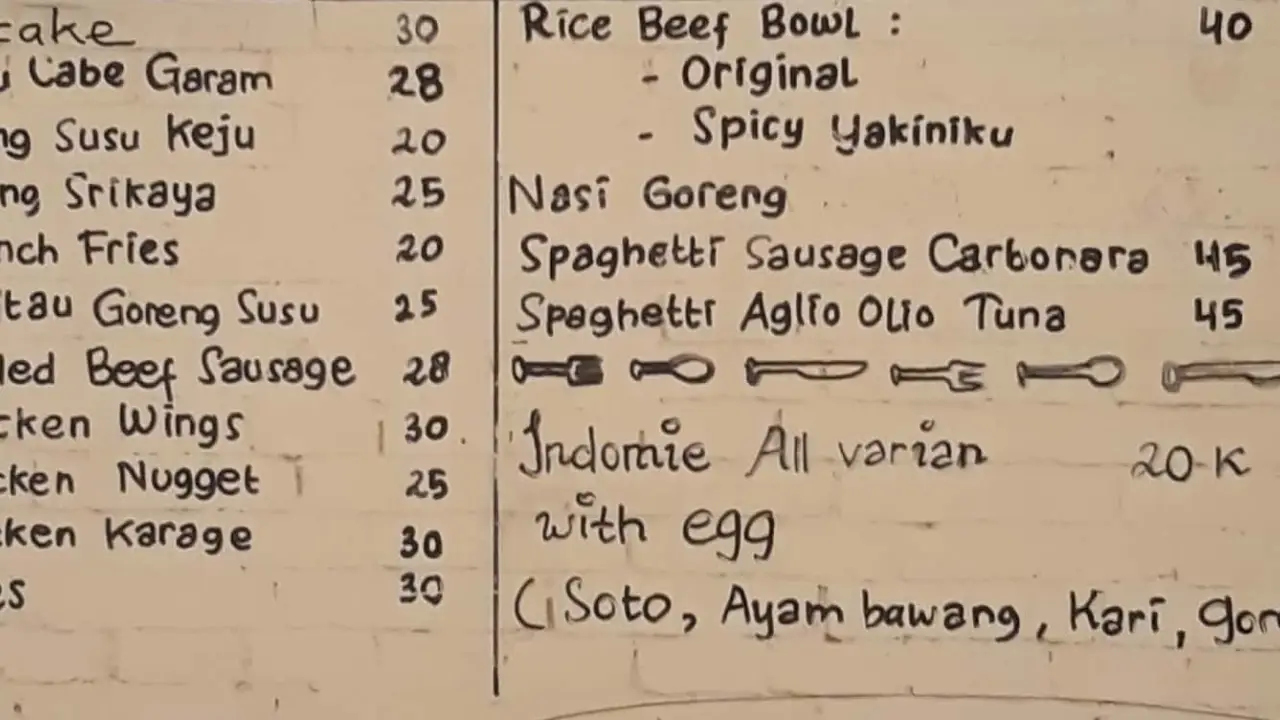 cake 30
Cabe Garam 28
ng Susu Keju 20
ng Srikaya 25
nch Fries 20
tau Goreng Susu 25
led Beef Sausage 28
cken Wings 30
cken Nugget 25
cken Karage 30
es 30
Rice Beef Bowl : 40
- Original
- Spicy Yakiniku
Nasi Goreng
Spaghetti Sausage Carbonara 45
Spaghetti Aglio Olio Tuna 45
Indomie All varian 20 K
with egg
(Soto, Ayam bawang, Kari, gor